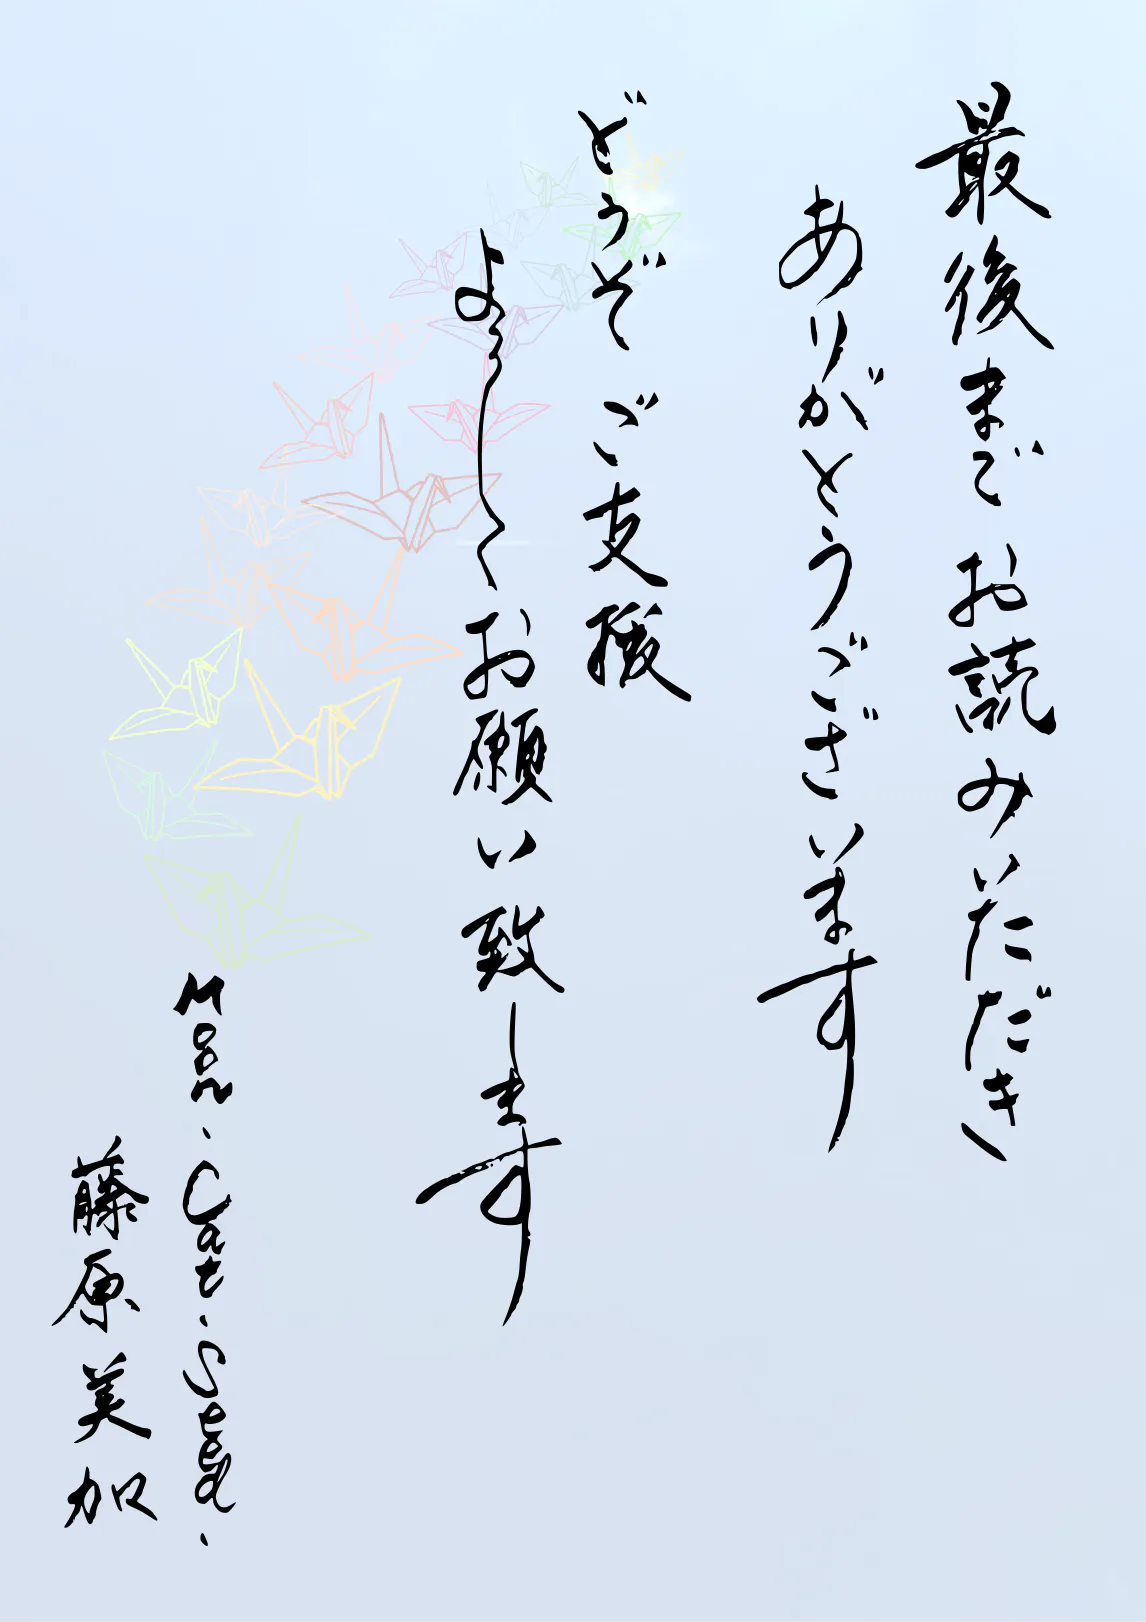 最後までお読みいただき
ありがとうございます
どうぞご支援
よろしくお願い致します
Moon.Cat.Seed.
藤原美加